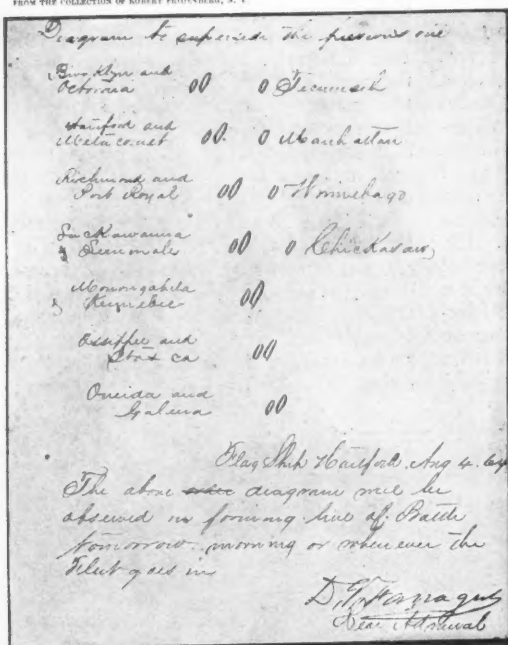 FROM THE COLLECTION OF ROBERT FRIDENBERG, N. Y.
Diagram to supercede the previous one
Brooklyn and
Octorora 00 0 Tecumseh
Hartford and
Metacomet 00. 0 Manhattan
Richmond and
Port Royal 00 0 Winnebago
Lackawanna
& Seminole 00 0 Chickasaw
Monongahela
& Kennebec 00
Ossippee and
Itasca 00
Oneida and
Galena 00
Flag Ship Hartford. Aug 4. 64
The above diagram will be
observed in forming line of Battle
tomorrow morning or whenever the
Fleet goes in
D. G. Farragut
Rear Admiral